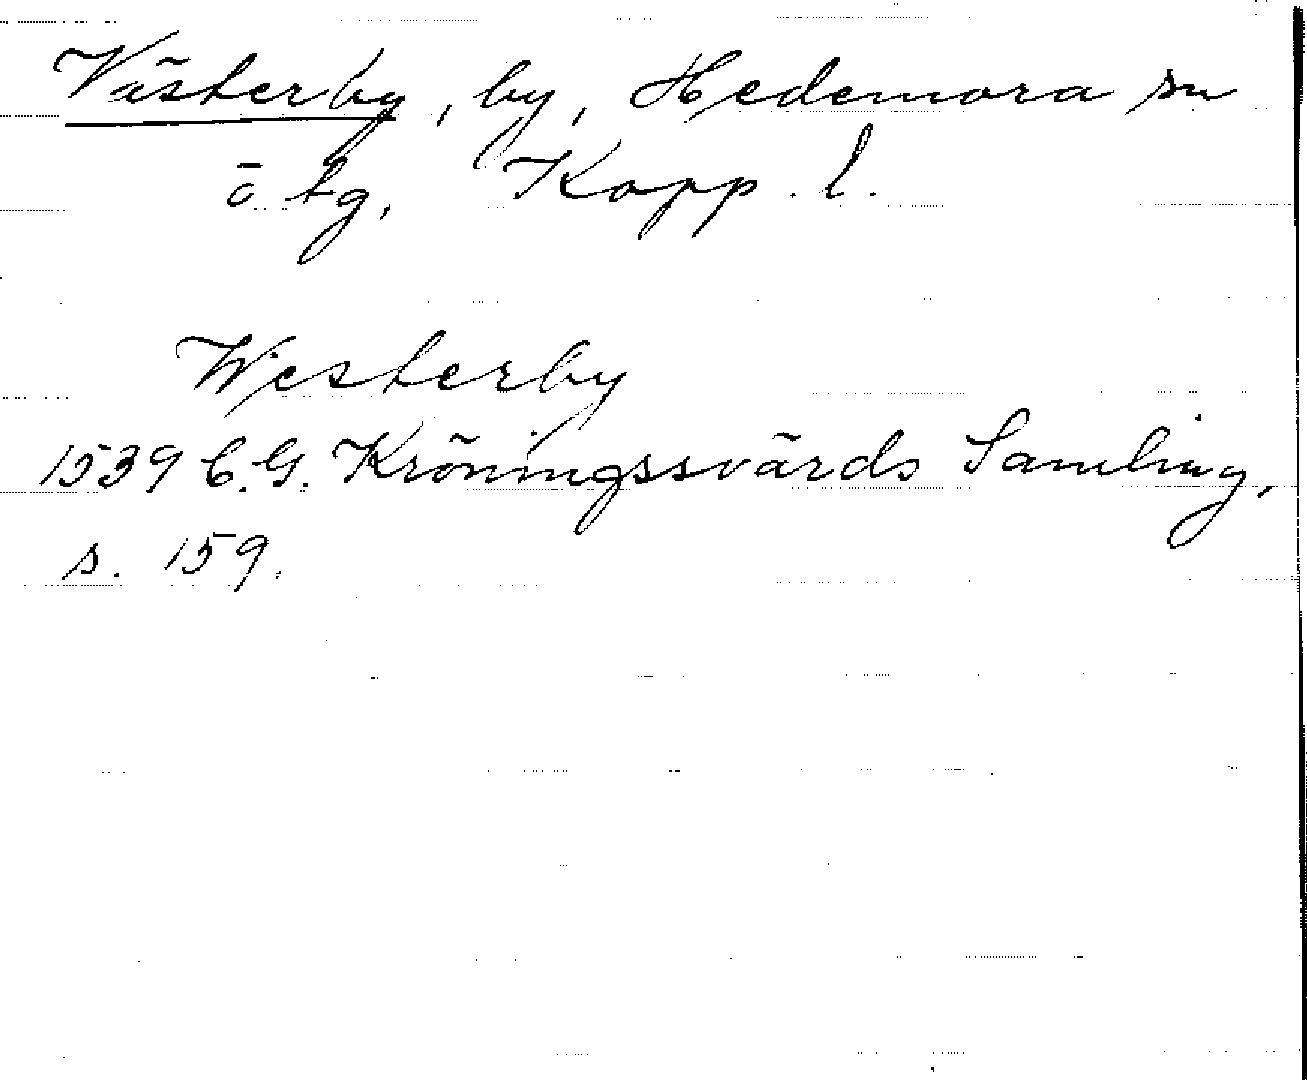 Västerby, by, Hedemora sn
ö tg, Kopp. l.
Westerby
1539 C.G. Kröningssvärds Samling,
s. 159.